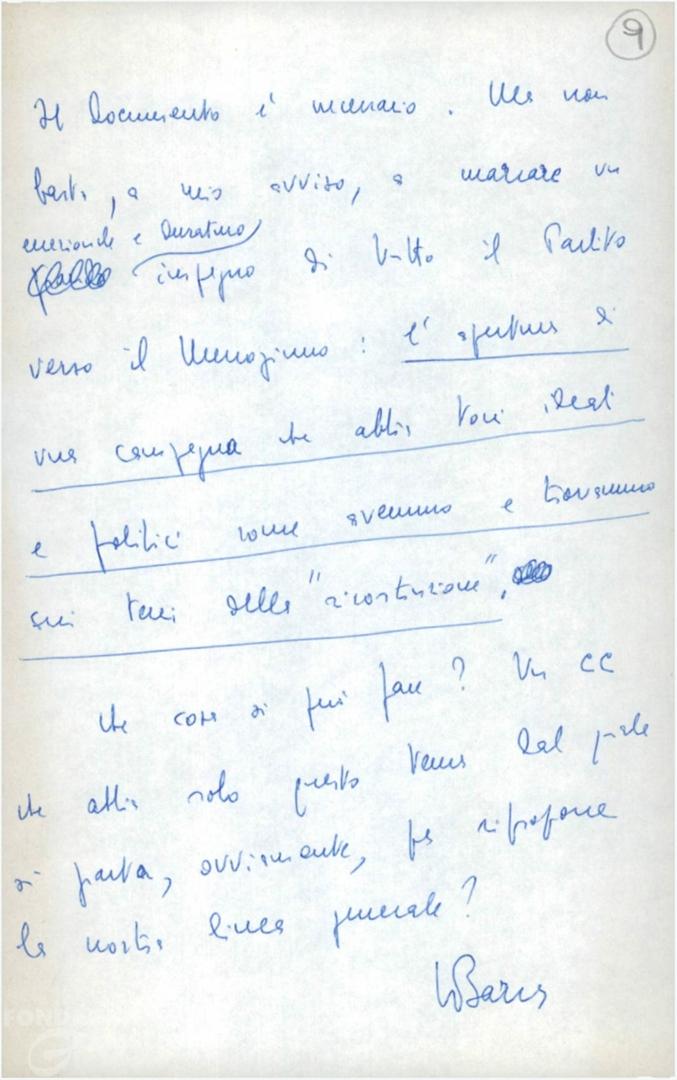 9
Il Documento è necessario. Ma non
basta, a mio avviso, a marcare un
e duraturo
impegno di tutto il Partito
verso il Mezzogiorno: l'apertura di
una campagna che abbia toni ideali
e politici come avemmo e trovammo
sui temi della "ricostruzione",
Che cosa si può fare? Un CC
che abbia solo questo tema dal quale
si parta, ovviamente, per riproporre
la nostra linea generale?
LBarca